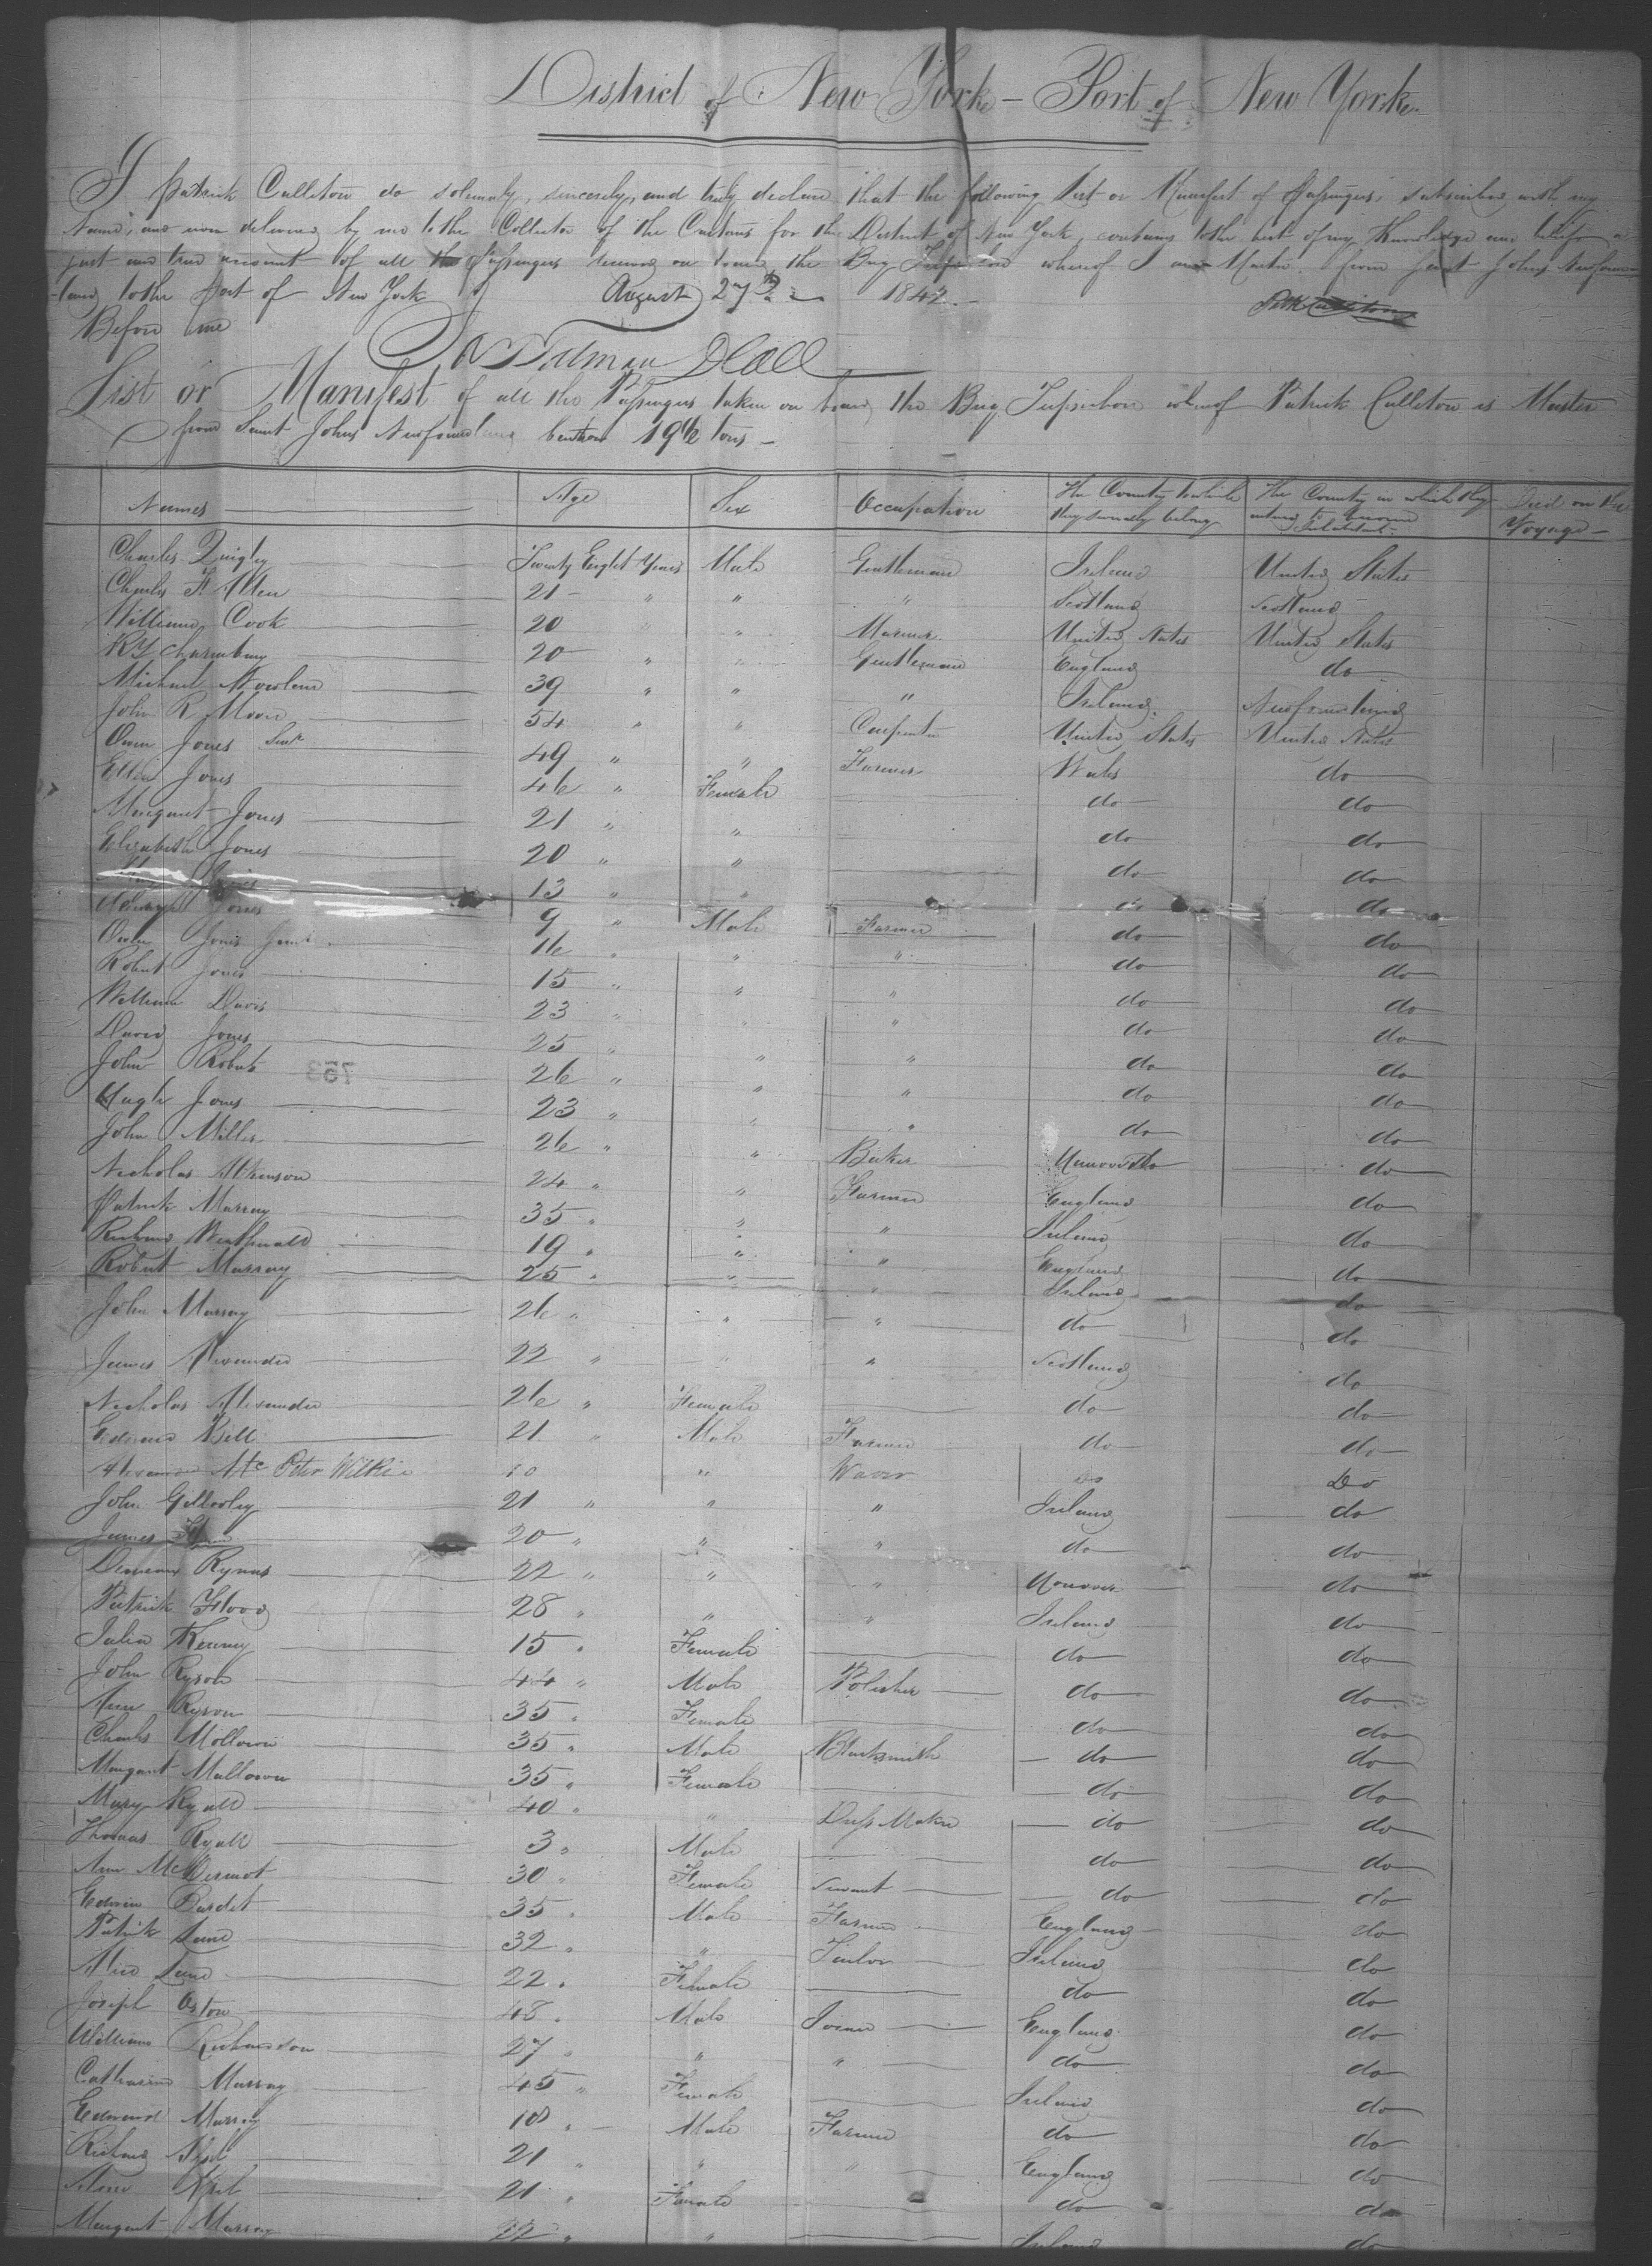 District of New York – Port of New York
I Patrick Culleton do solemnly, sincerely, and truly declare that the following List or Manifest of Passengers, subscribed with my
Name, and now delivered by me to the Collector of the Customs for the District of New York, contains to the best of my Knowledge and belief a
just and true account of all the Passengers received on board the Brig whereof I am Master from Saint Johns Newfound-
-land to the Port of New York August 27th 1842
Before me
Hall
List or Manifest of all the Passengers taken on board the Brig whereof Patrick Culleton is Master
from Saint Johns Newfoundland burthen tons –
Names Age Sex Occupation The Country to which they severally belong The Country in which they intend to become Inhabitants Died on the Voyage –
Charles Quigley Twenty Eight Years Male Gentleman Ireland United States
Charles F Allen 21 – " " " Scotland Scotland
William Cook 20 " " Mariner United States United States
20 " " Gentleman England do
Michael Nowlan 39 " " " Ireland Newfoundland
John R Moore 54 " " Carpenter United States United States
Owen Jones Senr 49 " " Farmer Wales do
Ellen Jones 46 " Female do do
Margaret Jones 21 " " do do
Elizabeth Jones 20 " " do do
Jones 13 " " do do
Jones 9 " Male Farmer do do
Owen Jones Junr 16 " " " do do
Robert Jones 15 " " " do do
William Davis 23 " " " do do
David Jones 25 " " " do do
John Roberts 26 " " " do do
Hugh Jones 23 " " " do do
John Miller 26 " " Baker do
Nicholas Atkinson 24 " " Farmer England do
Patrick Murray 35 " " " Ireland do
Richard 19 " " " England do
Robert Murray 25 " " " Ireland do
John Murray 26 " " " do do
James Alexander 22 " " " Scotland do
Nicholas Alexander 26 " Female do do
Edward Bell 21 " Male Farmer do do
Peter Wilkie " Do Do
John Gillooley 21 " " " Ireland do
James 20 " " " do do
Rynas 22 " " " Hanover do
Patrick Flood 28 " " " Ireland do
Julia Kenny 15 " Female do do
John Ryson 44 " Male Polisher do do
Ann Ryson 35 " Female do do
Charles Mollown 35 " Male Blacksmith do do
Margaret Mallown 35 " Female do do
Mary Ryall 40 " " Dress Maker do do
Thomas Ryall 3 " Male do do
Ann McDermot 30 " Female Servant do do
Edwin Burdet 35 " Male Farmer England do
Patrick Lane 32 " " Tailor Ireland do
Alice Lane 22 " Female do do
Joseph Oston 48 " Male Joiner England do
William Richardson 27 " " " do do
Catharine Murray 45 " Female Ireland do
Edmund Murray 10 " Male Farmer do do
Richard 21 " " " England do
21 " Female do do
Margaret Murray 22 " " Ireland do
753